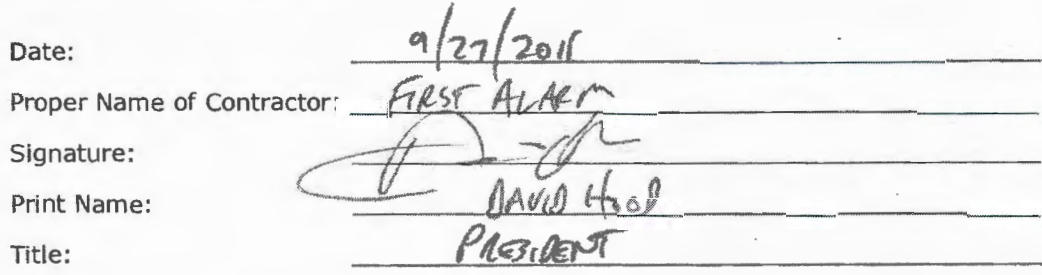 Date: 9/27/2011
Proper Name of Contractor: FIRST ALARM
Signature:
Print Name: DAVID HOOD
Title: PRESIDENT